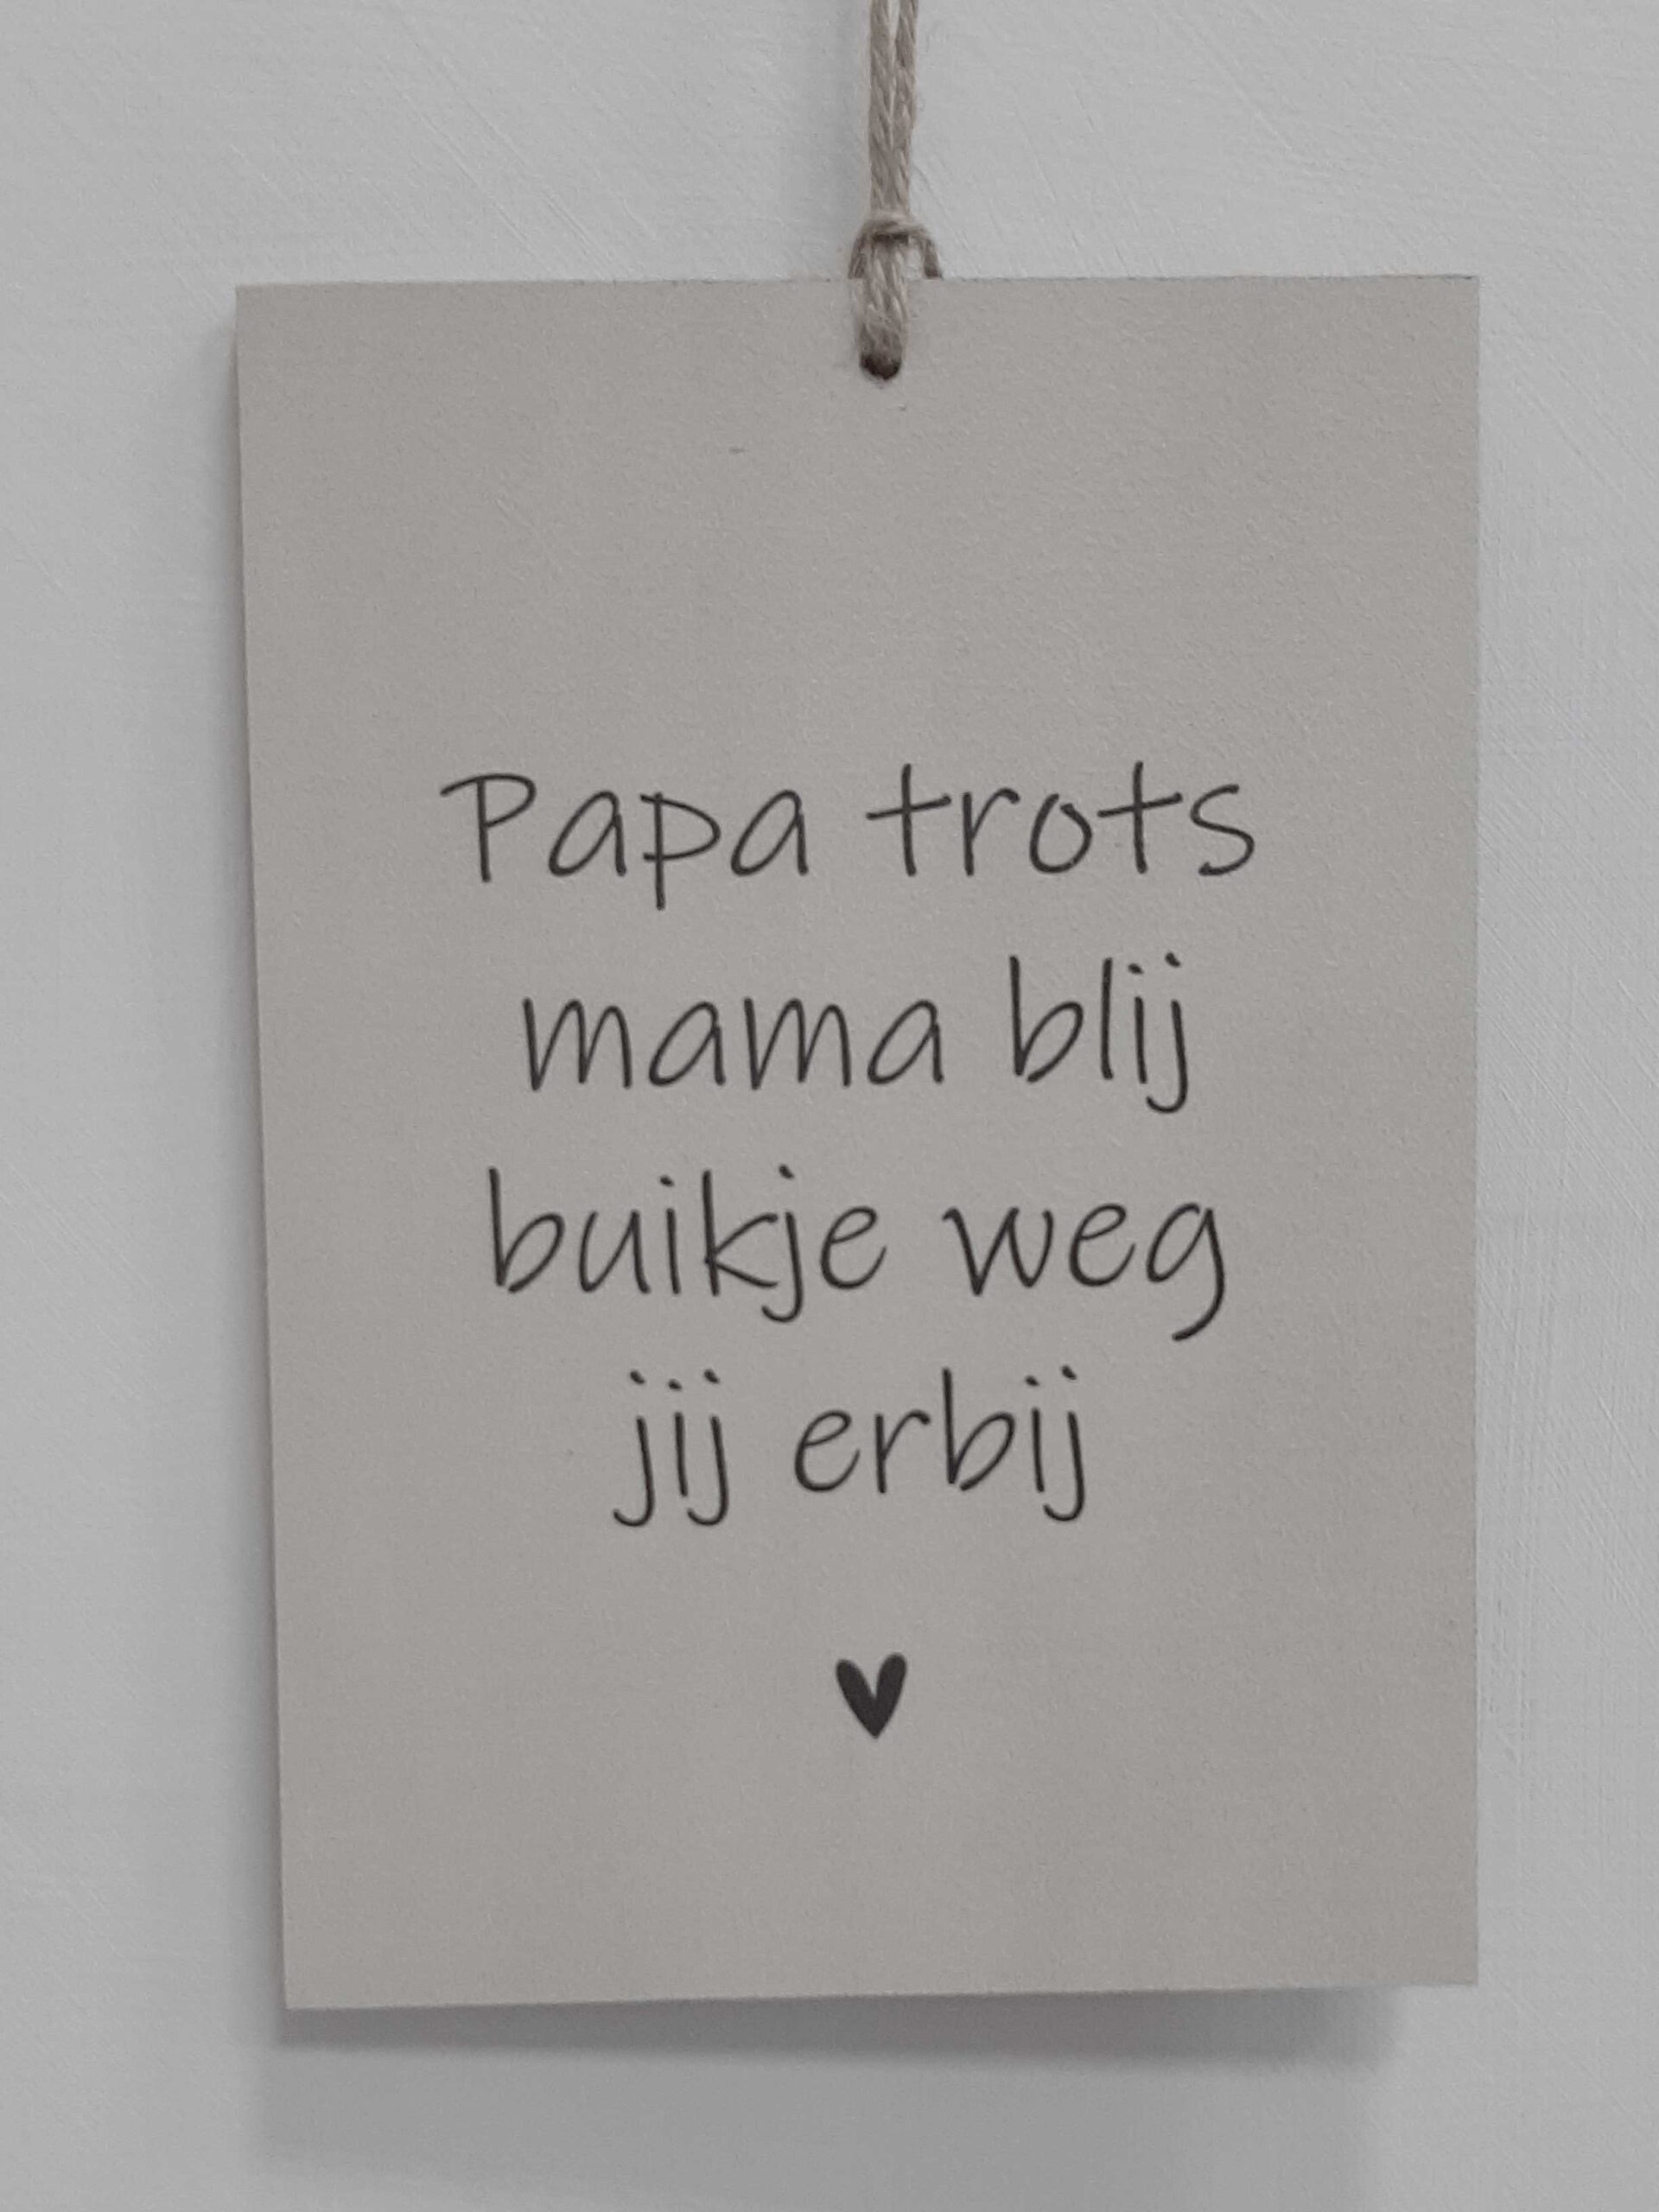 Papa trots
mama blij
buikje weg
jij erbij